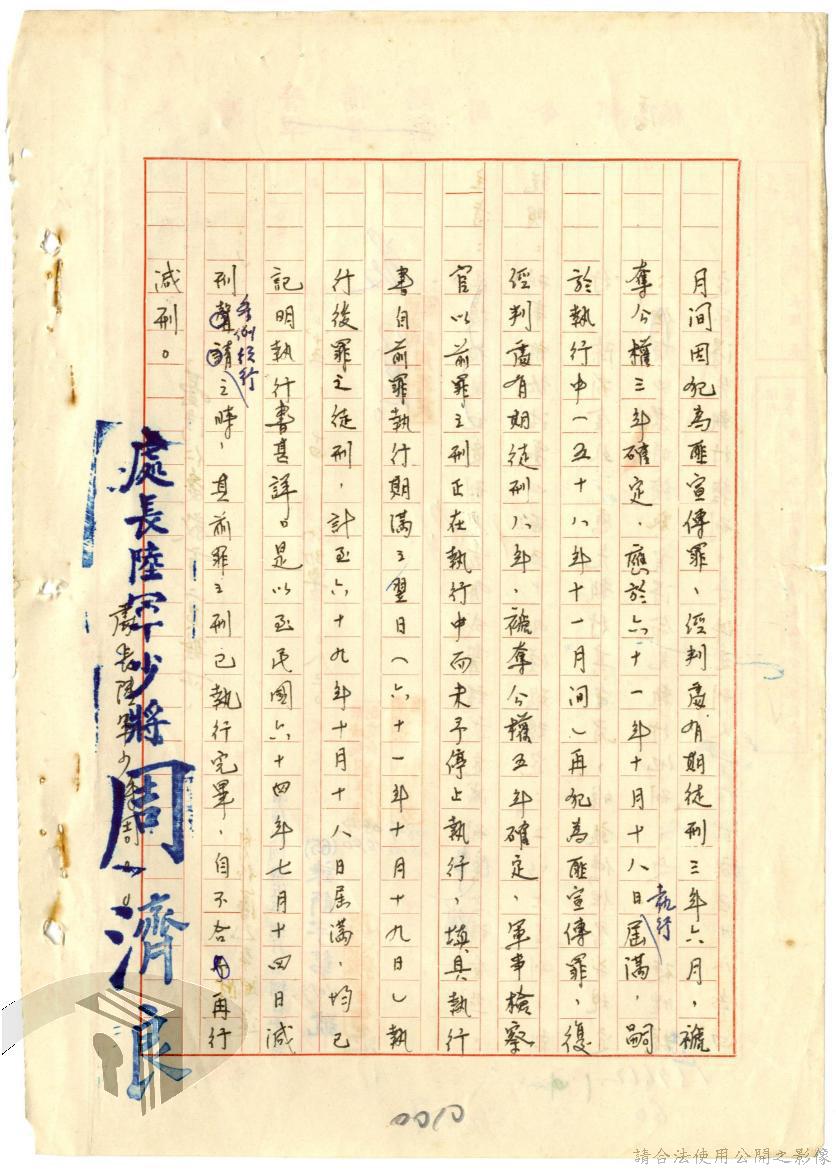 月间因犯為匪宣傳罪、經判處有期徒刑三年六月，褫
奪公權三年確定，應於六十一年十月十八日執行屆滿，嗣
於執行中（五十八年十一月间）再犯為匪宣傳罪，復
經判處有期徒刑八年，褫奪公權五年確定，軍事檢察
官以前罪之刑正在執行中而未予停止執行，填具執行
書自前罪執行期滿之翌日（六十一年十月十九日）執
行後罪之徒刑，計至六十九年十月十八日屆滿，均已
記明執行書甚詳。是以至民國六十四年七月十四日減
刑條例施行之時，其前罪之刑已執行完畢，自不合再行
減刑。
處長陸軍少將周濟良
處長陸軍少將周
0010
請合法使用公開之影像